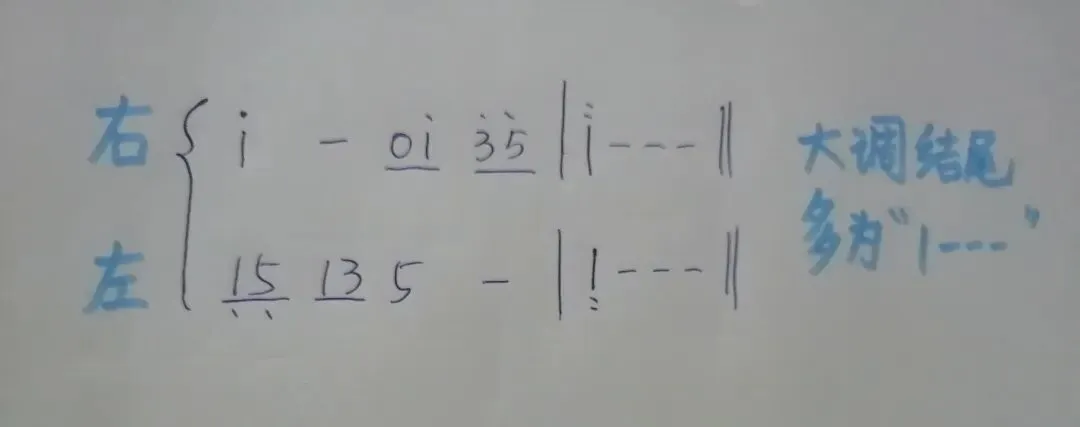 右 { i̇ - 0i̇ 3̇5̇ | i̇̇ - - - ‖
左 15 13 5 - | 1 - - - ‖
大调结尾
多为“1---”